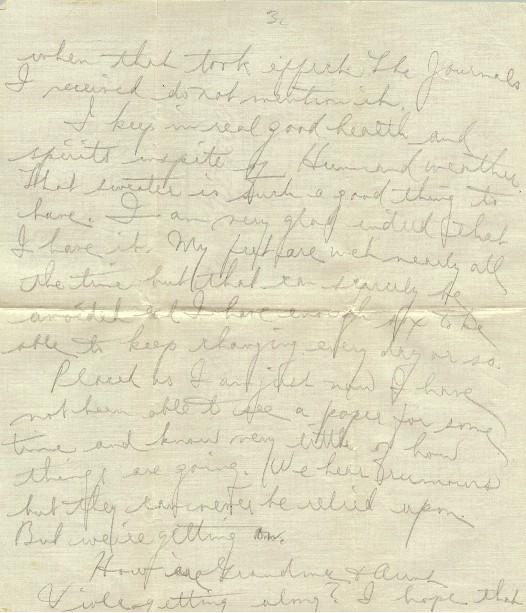 3.
when that took effect. The Journals
I received do not mention it.
I keep in real good health and
spirits inspite of Huns and weather.
That sweater is such a good thing to
have. I am very glad indeed that
I have it. My feet are wet nearly all
the time but that can scarcely be
avoided I have enough sox to be
able to keep changing every day or so.
Placed as I am just now I have
not been able to see a paper for some
time and know very little of how
things are going. We hear rumours
but they can never be relied upon.
But we're getting on.
How are Grandma & Aunt
Viola getting along? I hope that